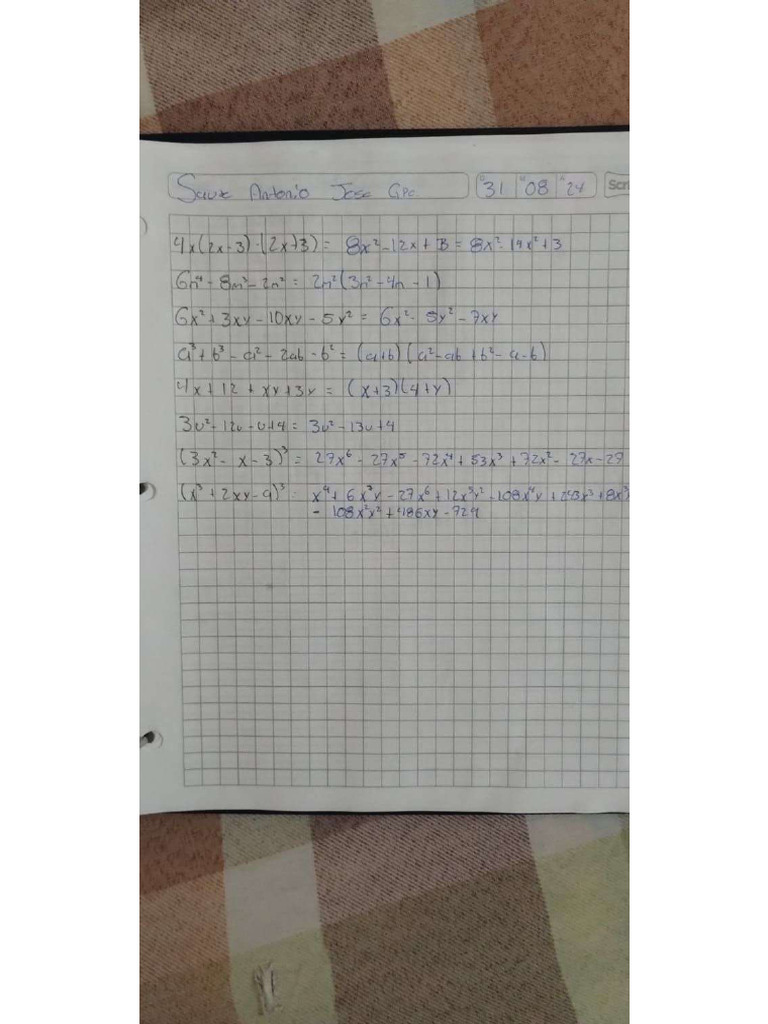 Antonio Jose Gpe 31 08 24 Scri
4x(2x-3)·(2x+3) = 8x²-12x+3 = 8x²-14x²+3
6n⁴-8m³-2n² = 2m²(3n²-4n-1)
6x²+3xy-10xy-5y² = 6x²-5y²-7xy
a³+b³-a²-2ab-b² = (a+b)(a²-ab+b²-a-b)
4x+12+xy+3y = (x+3)(4+y)
3u²-12u-u+4 = 3u²-13u+4
(3x²-x-3)³ = 27x⁶-27x⁵-72x⁴+53x³+72x²-27x-27
(x³+2xy-9)³ = x⁹+6x⁷y-27x⁶+12x⁵y²-108x⁴y+243x³+8x³
-108x²y²+486xy-729